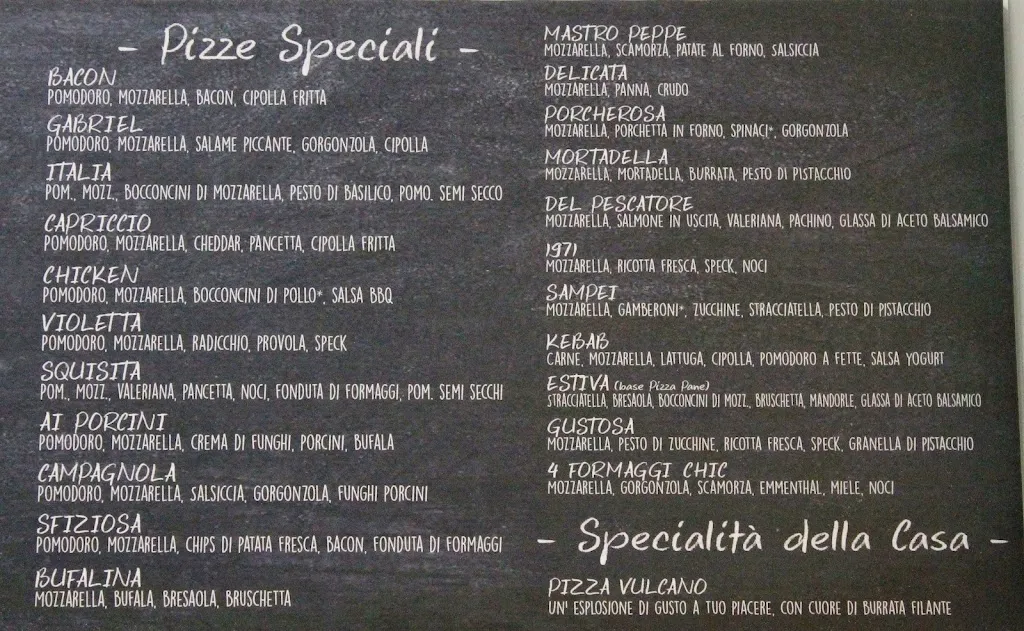 - Pizze Speciali -
BACON
POMODORO, MOZZARELLA, BACON, CIPOLLA FRITTA
GABRIEL
POMODORO, MOZZARELLA, SALAME PICCANTE, GORGONZOLA, CIPOLLA
ITALIA
POM., MOZZ., BOCCONCINI DI MOZZARELLA, PESTO DI BASILICO, POMO. SEMI SECCO
CAPRICCIO
POMODORO, MOZZARELLA, CHEDDAR, PANCETTA, CIPOLLA FRITTA
CHICKEN
POMODORO, MOZZARELLA, BOCCONCINI DI POLLO*, SALSA BBQ
VIOLETTA
POMODORO, MOZZARELLA, RADICCHIO, PROVOLA, SPECK
SQUISITA
POM., MOZZ., VALERIANA, PANCETTA, NOCI, FONDUTA DI FORMAGGI, POM. SEMI SECCHI
AI PORCINI
POMODORO, MOZZARELLA, CREMA DI FUNGHI, PORCINI, BUFALA
CAMPAGNOLA
POMODORO, MOZZARELLA, SALSICCIA, GORGONZOLA, FUNGHI PORCINI
SFIZIOSA
POMODORO, MOZZARELLA, CHIPS DI PATATA FRESCA, BACON, FONDUTA DI FORMAGGI
BUFALINA
MOZZARELLA, BUFALA, BRESAOLA, BRUSCHETTA
MASTRO PEPPE
MOZZARELLA, SCAMORZA, PATATE AL FORNO, SALSICCIA
DELICATA
MOZZARELLA, PANNA, CRUDO
PORCHEROSA
MOZZARELLA, PORCHETTA IN FORNO, SPINACI*, GORGONZOLA
MORTADELLA
MOZZARELLA, MORTADELLA, BURRATA, PESTO DI PISTACCHIO
DEL PESCATORE
MOZZARELLA, SALMONE IN USCITA, VALERIANA, PACHINO, GLASSA DI ACETO BALSAMICO
1971
MOZZARELLA, RICOTTA FRESCA, SPECK, NOCI
SAMPEI
MOZZARELLA, GAMBERONI*, ZUCCHINE, STRACCIATELLA, PESTO DI PISTACCHIO
KEBAB
CARNE, MOZZARELLA, LATTUGA, CIPOLLA, POMODORO A FETTE, SALSA YOGURT
ESTIVA (base Pizza Pane)
STRACCIATELLA, BRESAOLA, BOCCONCINI DI MOZZ., BRUSCHETTA, MANDORLE, GLASSA DI ACETO BALSAMICO
GUSTOSA
MOZZARELLA, PESTO DI ZUCCHINE, RICOTTA FRESCA, SPECK, GRANELLA DI PISTACCHIO
4 FORMAGGI CHIC
MOZZARELLA, GORGONZOLA, SCAMORZA, EMMENTHAL, MIELE, NOCI
- Specialità della Casa -
PIZZA VULCANO
UN' ESPLOSIONE DI GUSTO A TUO PIACERE, CON CUORE DI BURRATA FILANTE